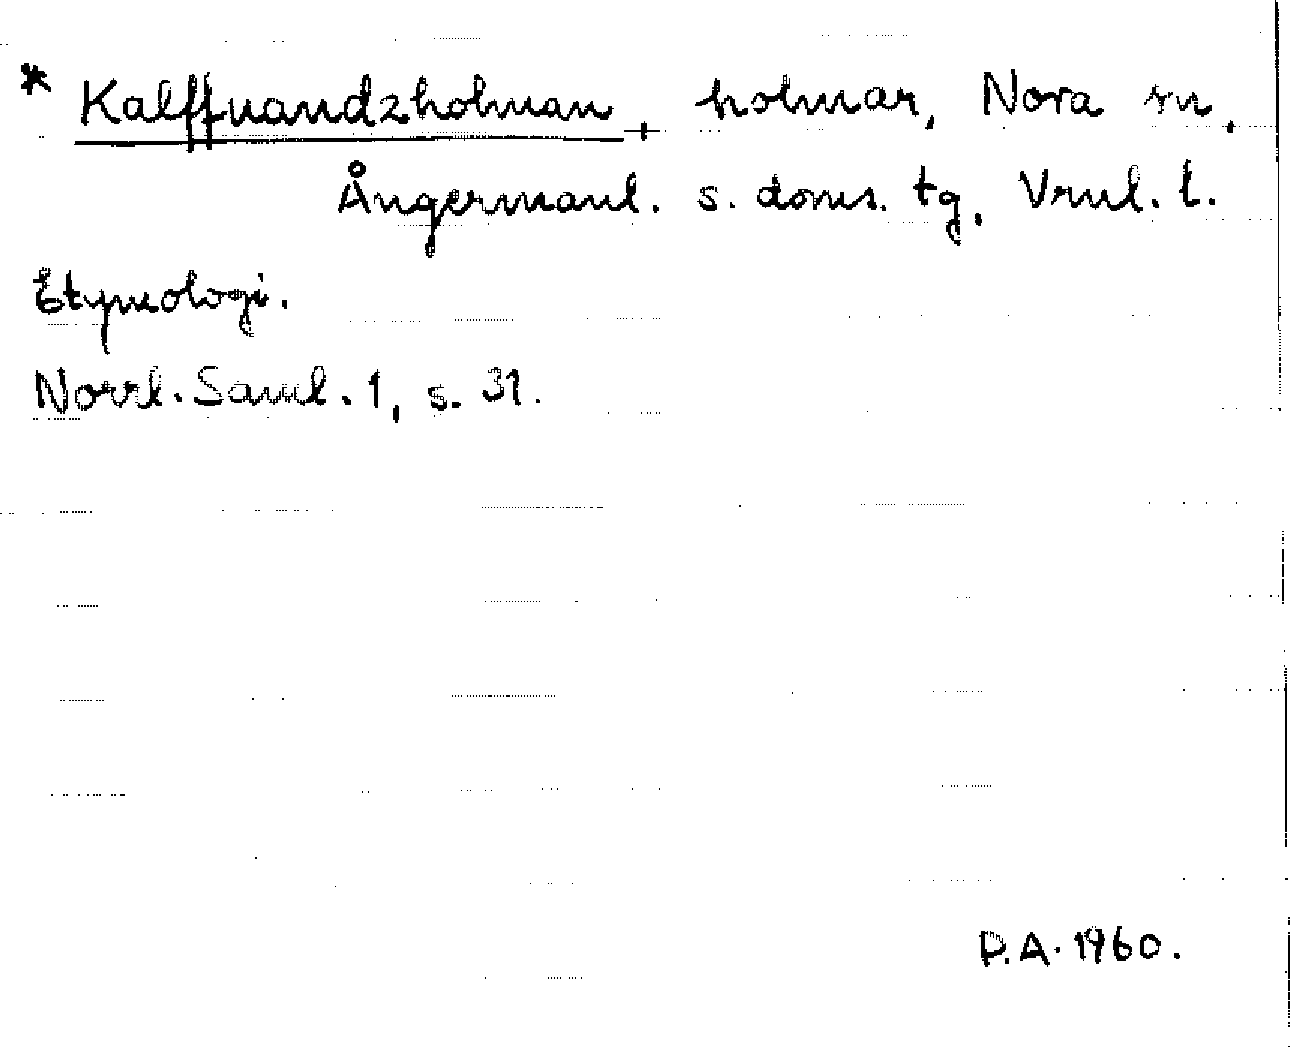 * Kalffuandzholman, holmar, Nora sn,
Ångermanl. s. doms. tg, Vrnl. l.
Etymologi.
Norrl. Saml. 1, s. 31.
P.A. 1960.